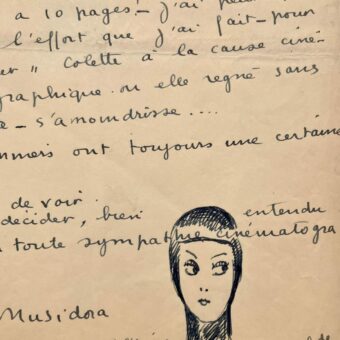 a 10 pages! - j'ai
l'effort que j'ai fait - pour
er" Colette à la cause ciné-
graphique. ou elle regne sans
e - s'amoindrisse....
ont toujours une certaine
de voir.
decider, bien entendu
toute sympathie cinématogra
Musidora